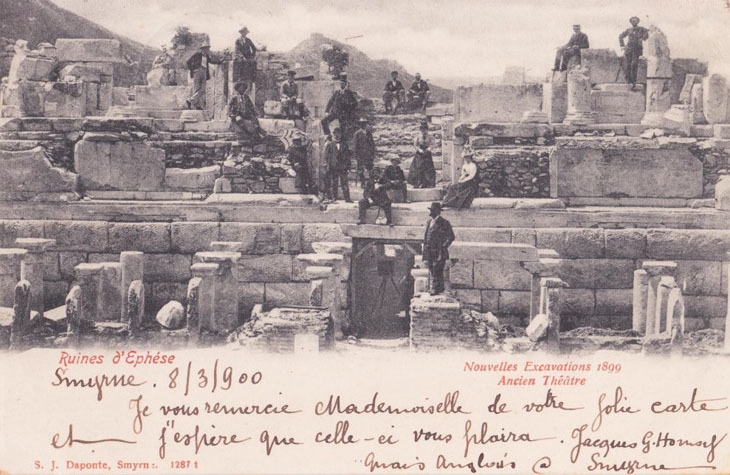 Ruines d'Ephése
Nouvelles Excavations 1899
Ancien Théâtre
Smyrne. 8/3/900
Je vous remercie Mademoiselle de votre jolie carte
et j'espère que celle-ci vous plaira. Jacques G.
Quais Anglais à Smyrne
S. J. Daponte, Smyrne. 1287 1